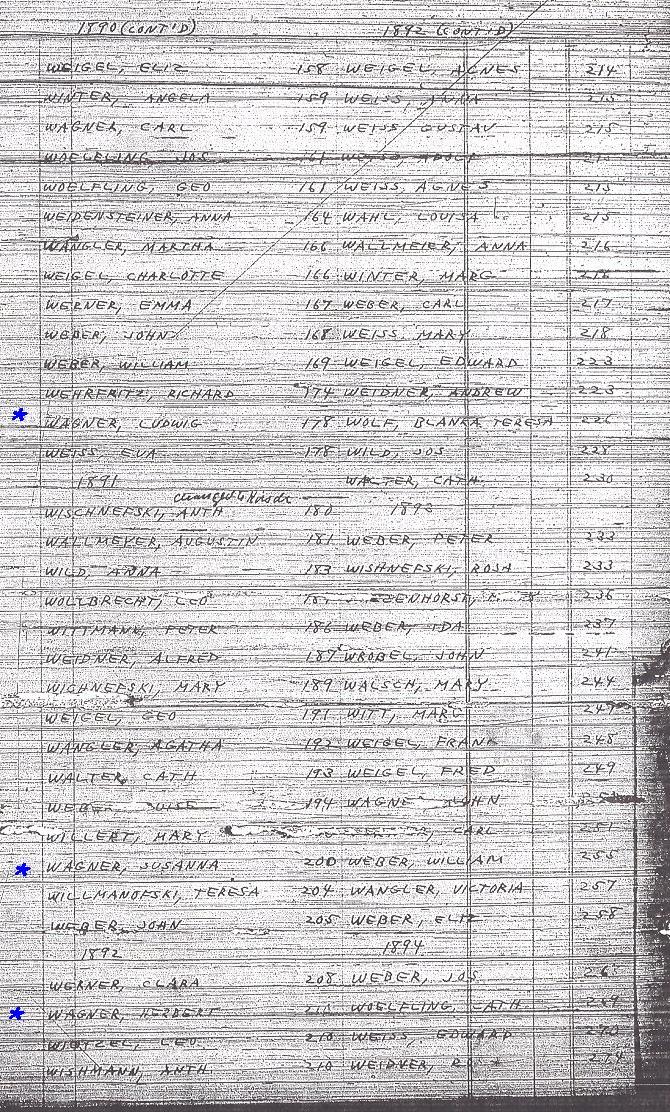 1890 (CONT'D) 1892 (CONT'D)
WEIGEL, ELIZ 158 WEIGEL, AGNES 214
WINTER, ANGELA 159 WEISS, ANNA 215
WAGNER, CARL 159 WEISS GUSTAV 215
WOELFLING, JOS 161 WEISS, ADOLF 215
WOELFLING, GEO 161 WEISS, AGNES 215
WEIDENSTEINER, ANNA 164 WAHL, LOUISA 215
WANGLER, MARTHA 166 WALLMEIER, ANNA 216
WEIGEL, CHARLOTTE 166 WINTER, MARG 216
WERNER, EMMA 167 WEBER, CARL 217
WEBER, JOHN 168 WEISS MARY 218
WEBER, WILLIAM 169 WEIGEL, EDWARD 223
WEHRFRITZ, RICHARD 174 WEIDNER, ANDREW 223
* WAGNER, LUDWIG 178 WOLF, BLANKA TERESA 226
WEISS, EVA 178 WILD, JOS 228
1891 WALTER, CATH 230
changed to
WISCHNEFSKI, ANTH 180 1893
WALLMEYER, AUGUSTIN 181 WEBER, PETER 233
WILD, ANNA 183 WISHNEFSKI, ROSA 233
WOLLBRECHT, LEO 236
WITTMANN, PETER 186 WEBER, IDA 237
WEIDNER, ALFRED 187 WROBEL, JOHN 241
WICHNEFSKI, MARY 189 WALSCH, MARY 244
WEIGEL, GEO 191 WITT, MARG 247
WANGLER, AGATHA 192 WEIGEL, FRANK 248
WALTER, CATH 193 WEIGEL, FRED 249
WEBER 194 WAGNER JOHN
WILLERT, MARY CARL 251
* WAGNER, SUSANNA 200 WEBER, WILLIAM 255
WILLMANOFSKI, TERESA 204 WANGLER, VICTORIA 257
WEBER, JOHN 205 WEBER, ELIZ 258
1892 1894
WERNER, CLARA 208 WEBER, JOS
* WAGNER, HERBERT 210 WOELFLING CATH 269
LEO 210 WEISS, EDWARD 270
WISHMANN, ANTH 210 WEIDNER, 274